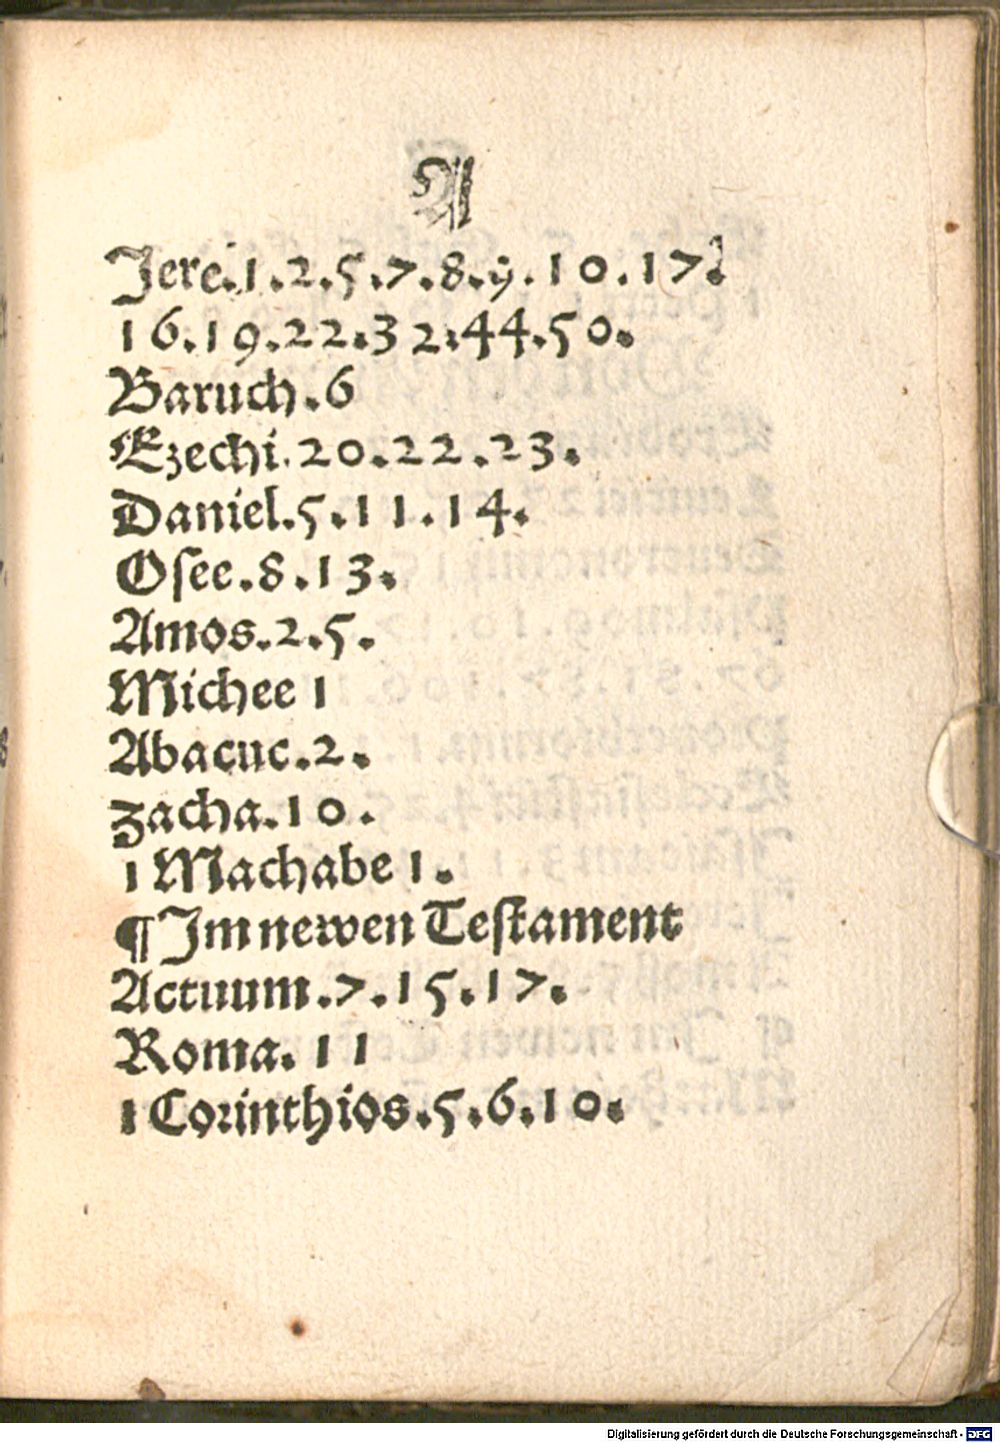 A
Jere.1.2.5.7.8.9.10.17.
16.19.22.32.44.50.
Baruch.6
Ezechi.20.22.23.
Daniel.5.11.14.
Oſee.8.13.
Amos.2.5.
Michee 1
Abacuc.2.
zacha.10.
1 Machabe 1.
¶ Im newen Teſtament
Actuum.7.15.17.
Roma.11
1 Corinthios.5.6.10.
Digitalisierung gefördert durch die Deutsche Forschungsgemeinschaft - DFG